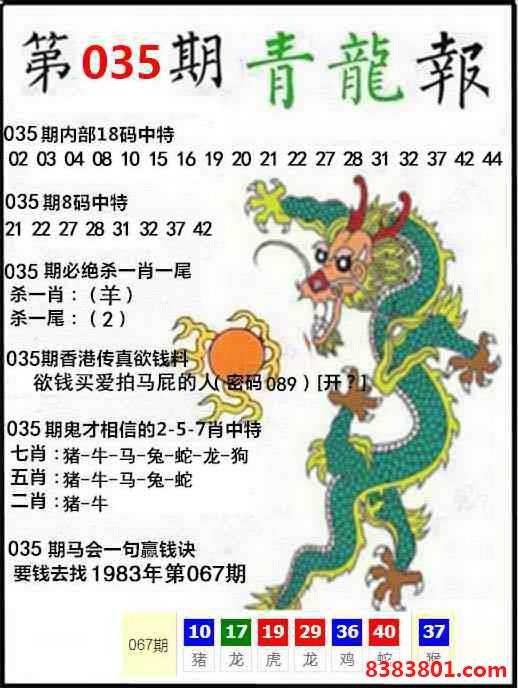 第035期青龍報
035期内部18码中特
02 03 04 08 10 15 16 19 20 21 22 27 28 31 32 37 42 44
035期8码中特
21 22 27 28 31 32 37 42
035期必绝杀一肖一尾
杀一肖：（羊）
杀一尾：（2）
035期香港传真欲钱料
欲钱买爱拍马屁的人(密码089)[开？]
035期鬼才相信的2-5-7肖中特
七肖：猪-牛-马-兔-蛇-龙-狗
五肖：猪-牛-马-兔-蛇
二肖：猪-牛
035期马会一句赢钱诀
要钱去找1983年第067期
067期 10 17 19 29 36 40 37
猪 龙 虎 龙 鸡 蛇 猴
8383801.com